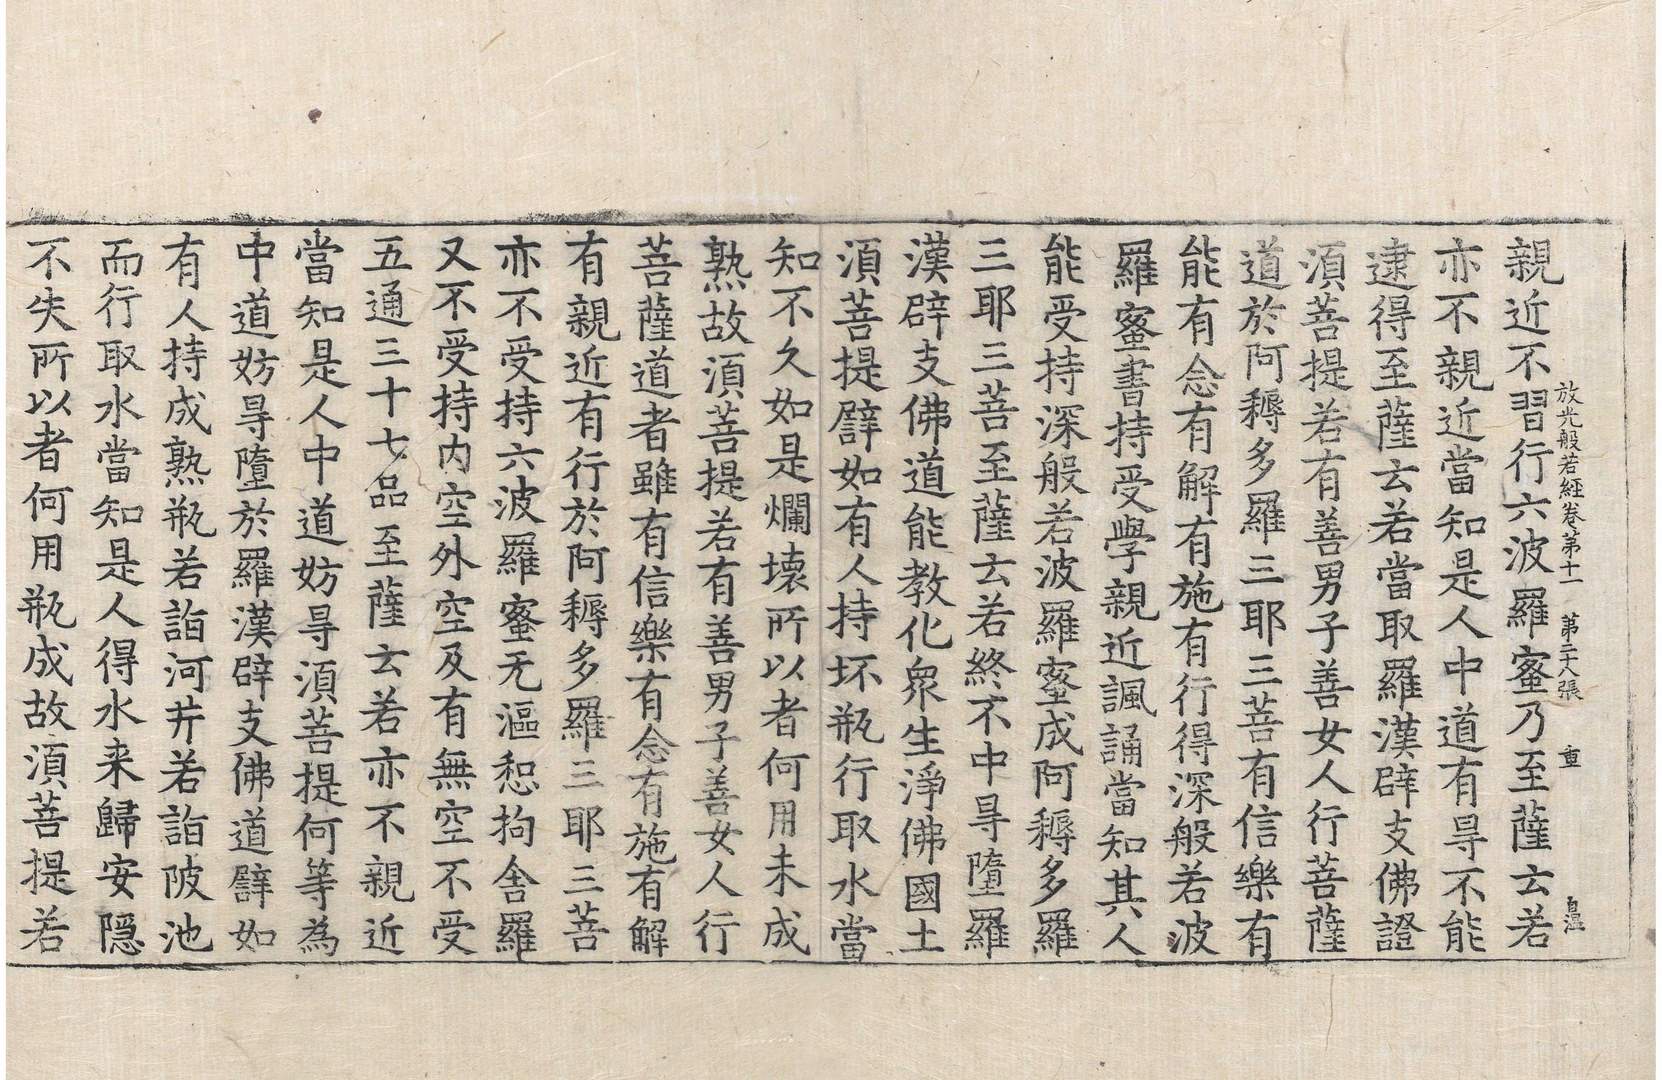 放光般若經卷第十一 第二十八張 重
親近不習行六波羅蜜乃至薩云若
亦不親近當知是人中道有㝵不能
逮得至薩云若當取羅漢辟支佛證
湏菩提若有善男子善女人行菩薩
道於阿耨多羅三耶三菩有信樂有
能有念有解有施有行得深般若波
羅蜜書持受學親近諷誦當知其人
能受持深般若波羅蜜成阿耨多羅
三耶三菩至薩云若終不中㝵墮羅
漢辟支佛道能教化眾生淨佛國土
湏菩提譬如有人持坏瓶行取水當
知不久如是爛壞所以者何用未成
熟故湏菩提若有善男子善女人行
菩薩道者雖有信樂有念有施有解
有親近有行於阿耨多羅三耶三菩
亦不受持六波羅蜜无漚惒拘舍羅
又不受持内空外空及有無空不受
五通三十七品至薩云若亦不親近
當知是人中道妨㝵湏菩提何等為
中道妨㝵墮於羅漢辟支佛道譬如
有人持成熟瓶若詣河井若詣陂池
而行取水當知是人得水来歸安隱
不失所以者何用瓶成故湏菩提若